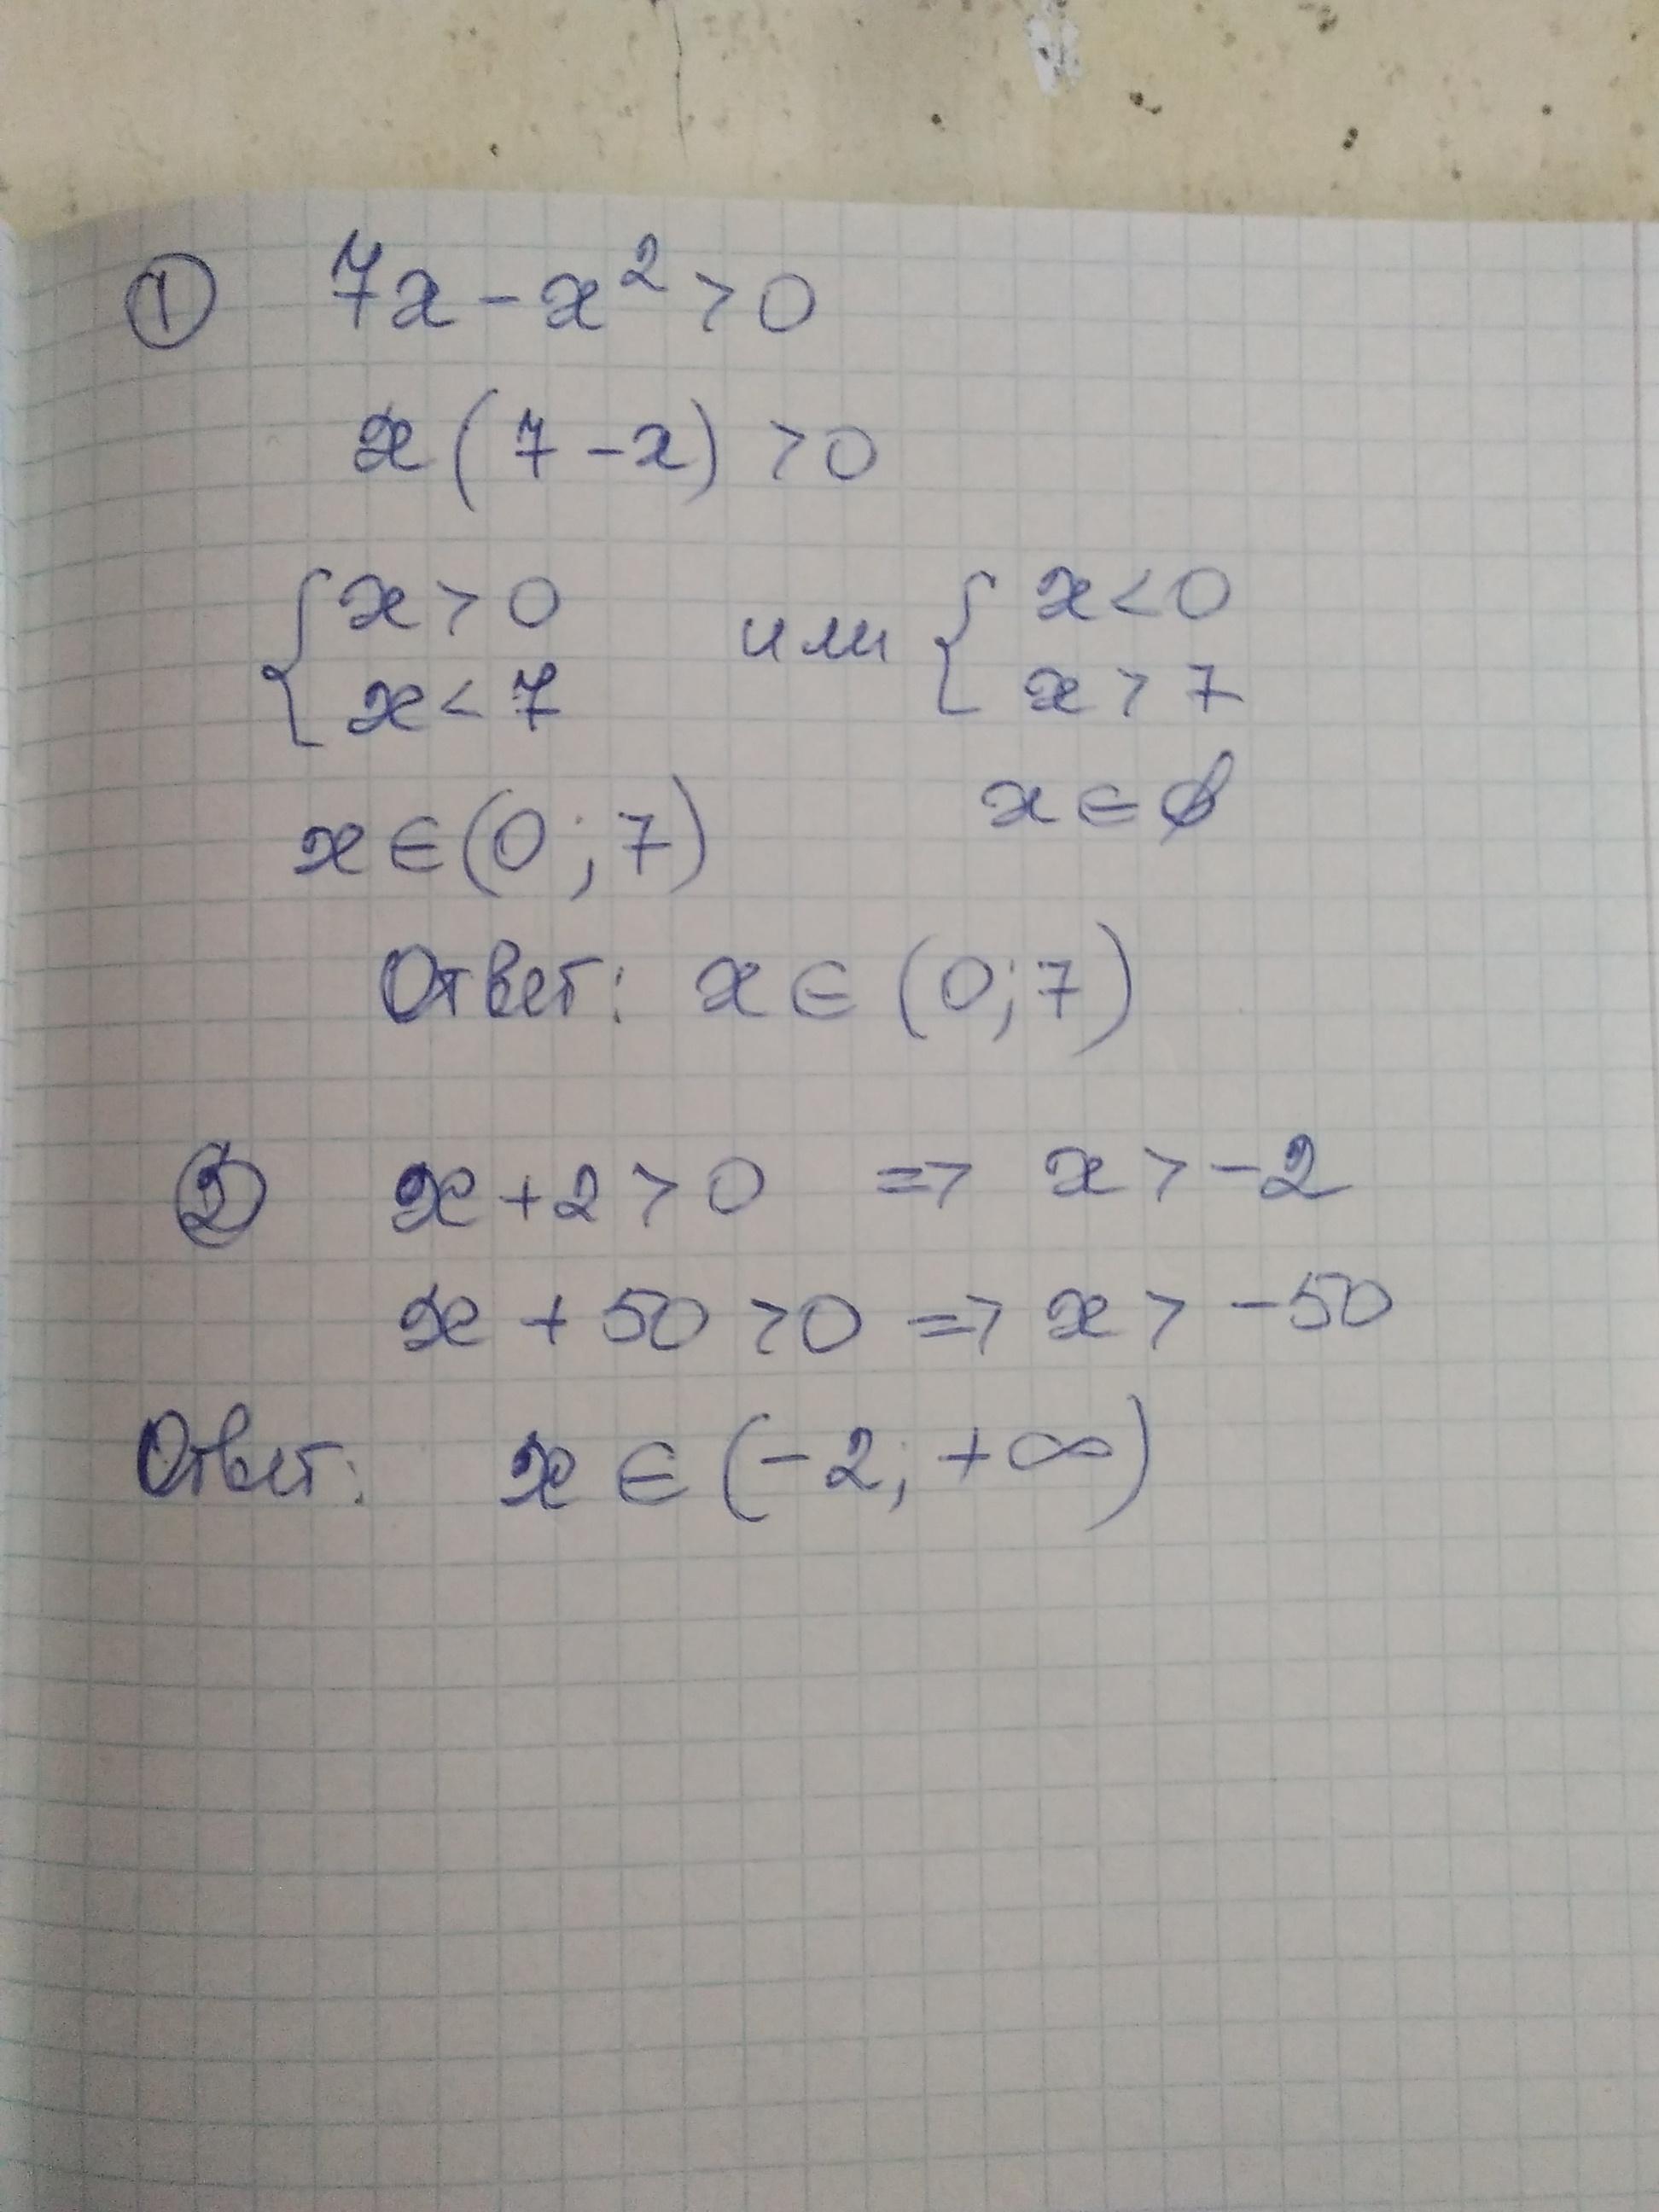 ① 7x - x² > 0
x(7 - x) > 0
{ x > 0 или { x < 0
x < 7 x > 7
x ∈ (0; 7) x ∈ ∅
Ответ: x ∈ (0; 7)
② x + 2 > 0 => x > -2
x + 50 > 0 => x > -50
Ответ: x ∈ (-2; +∞)